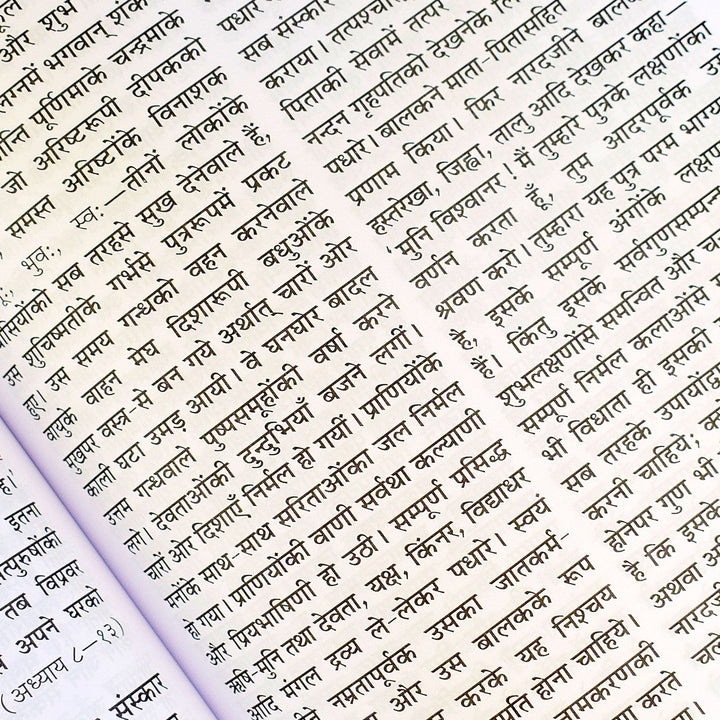 इतना
तब विप्रवर
अपने घरको
(अध्याय ८—१३)
संस्कार
और शुभ
भगवान् शंक
पूर्णिमाके चन्द्रमाके
जो अरिष्टरूपी दीपकको
समस्त अरिष्टोंके विनाशक
भुवः, स्वः—तीनों लोकोंके
सब तरहसे सुख देनेवाले हैं,
उस शुचिस्मतीके गर्भसे पुत्ररूपमें प्रकट
हुए। उस समय गन्धको वहन करनेवाले
वायुके वाहन मेघ दिशारूपी बधुओंके
मुखपर वस्त्र-से बन गये अर्थात् चारों ओर
काली घटा उमड़ आयी। वे घनघोर बादल
उत्तम गन्धवाले पुष्पसमूहोंकी वर्षा करने
लगे। देवताओंकी दुन्दुभियाँ बजने लगीं।
चारों ओर दिशाएँ निर्मल हो गयीं। प्राणियोंके
मनोंके साथ-साथ सरिताओंका जल निर्मल
हो गया। प्राणियोंकी वाणी सर्वथा कल्याणी
और प्रियभाषिणी हो उठी। सम्पूर्ण प्रसिद्ध
ऋषि-मुनि तथा देवता, यक्ष, किंनर, विद्याधर
आदि मंगल द्रव्य ले-लेकर पधारे। स्वयं
नम्रतापूर्वक उसका जातकर्म-
और उस बालकके रूप
करके यह निश्चय
होना चाहिये।
नामकरणकी
करते
पधार
सब संस्कार
कराया। तत्पश्चा
पिताकी सेवामें तत्पर
नन्दन गृहपतिको देखनेके लि
पधारे। बालकने माता-पितासहित
प्रणाम किया। फिर नारदजीने बाल
हस्तरेखा, जिह्वा, तालु आदि देखकर कहा—
‘मुनि विश्वानर! मैं तुम्हारे पुत्रके लक्षणोंका
वर्णन करता हूँ, तुम आदरपूर्वक उ
श्रवण करो। तुम्हारा यह पुत्र परम भाग्य
है, इसके सम्पूर्ण अंगोंके लक्ष
हैं। किंतु इसके सर्वगुणसम्पन्न
शुभलक्षणोंसे समन्वित और च
सम्पूर्ण निर्मल कलाओंसे
भी विधाता ही इसकी
सब तरहके उपायोंद्वा
करनी चाहिये; क
होनेपर गुण भी
है कि इसक
अथवा अ
नारद